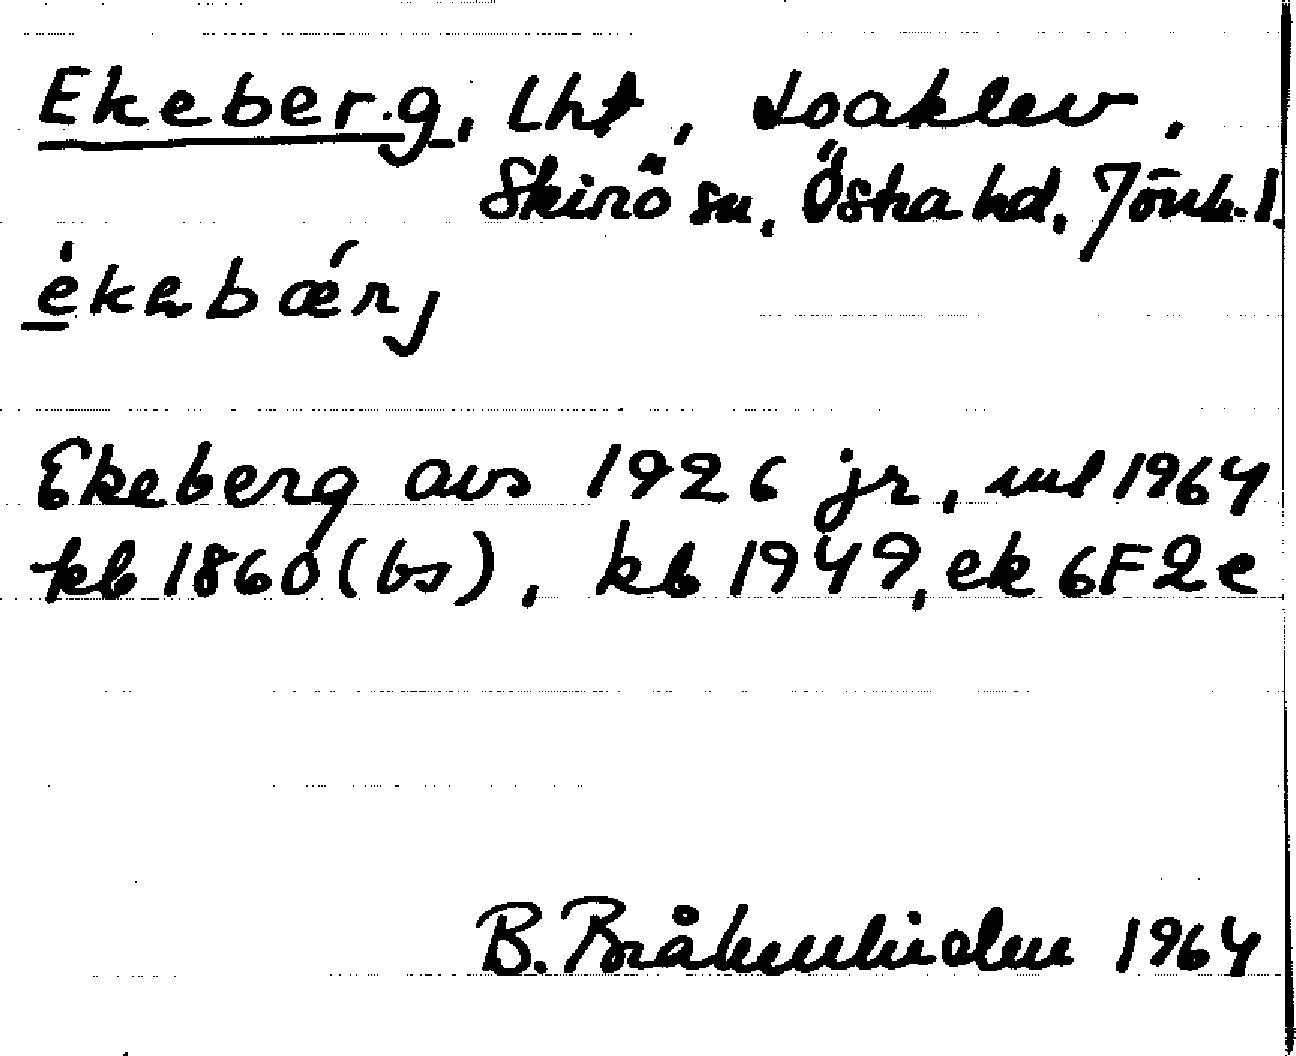 Ekeberg, Lht, Loaklev,
Skirö sn, Östra hd, Jönk. l.
èkabǽrj
Ekeberg avs 1926 jr, ml 1964
kb 1860 (bs), kb 1949, ek 6F2e
B. Bråkenhielm 1964